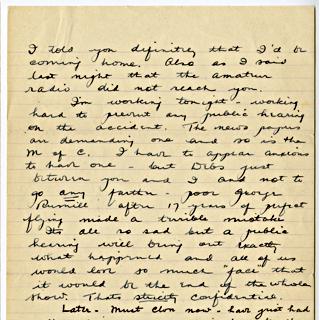 I told you definitely that I'd be
coming home. Also as I said
last night that the amateur
radio did not reach you.
I'm working tonight - working
hard to prevent any public hearing
on the accident. The news papers
are demanding one and so is the
M of C. I have to appear anxious
to have one - but Dibs just
between you and I and not to
go any farther poor George
after 17 years of perfect
flying made a terrible mistake
Its all so sad but a public
hearing will bring out exactly
what happened and all of us
would lose so much "face" that
it would be the end of the whole
show. Thats strictly confidential.
Later - Must close now - have just had